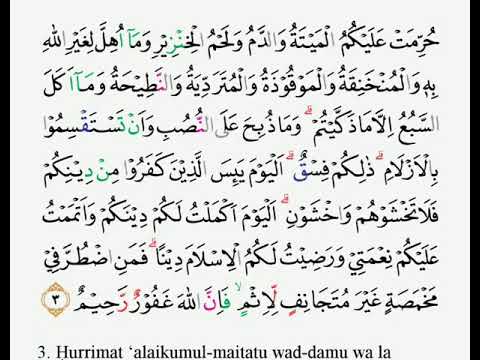 حُرِّمَتْ عَلَيْكُمُ الْمَيْتَةُ وَالدَّمُ وَلَحْمُ الْخِنْزِيْرِ وَمَآ اُهِلَّ لِغَيْرِ اللّٰهِ
بِهٖ وَالْمُنْخَنِقَةُ وَالْمَوْقُوْذَةُ وَالْمُتَرَدِّيَةُ وَالنَّطِيْحَةُ وَمَآ اَكَلَ
السَّبُعُ اِلَّا مَا ذَكَّيْتُمْۗ وَمَا ذُبِحَ عَلَى النُّصُبِ وَاَنْ تَسْتَقْسِمُوْا
بِالْاَزْلَامِۗ ذٰلِكُمْ فِسْقٌۗ اَلْيَوْمَ يَىِٕسَ الَّذِيْنَ كَفَرُوْا مِنْ دِيْنِكُمْ
فَلَا تَخْشَوْهُمْ وَاخْشَوْنِۗ اَلْيَوْمَ اَكْمَلْتُ لَكُمْ دِيْنَكُمْ وَاَتْمَمْتُ
عَلَيْكُمْ نِعْمَتِيْ وَرَضِيْتُ لَكُمُ الْاِسْلَامَ دِيْنًاۗ فَمَنِ اضْطُرَّ فِيْ
مَخْمَصَةٍ غَيْرَ مُتَجَانِفٍ لِّاِثْمٍۙ فَاِنَّ اللّٰهَ غَفُوْرٌ رَّحِيْمٌ ٣
3. Hurrimat ‘alaikumul-maitatu wad-damu wa la